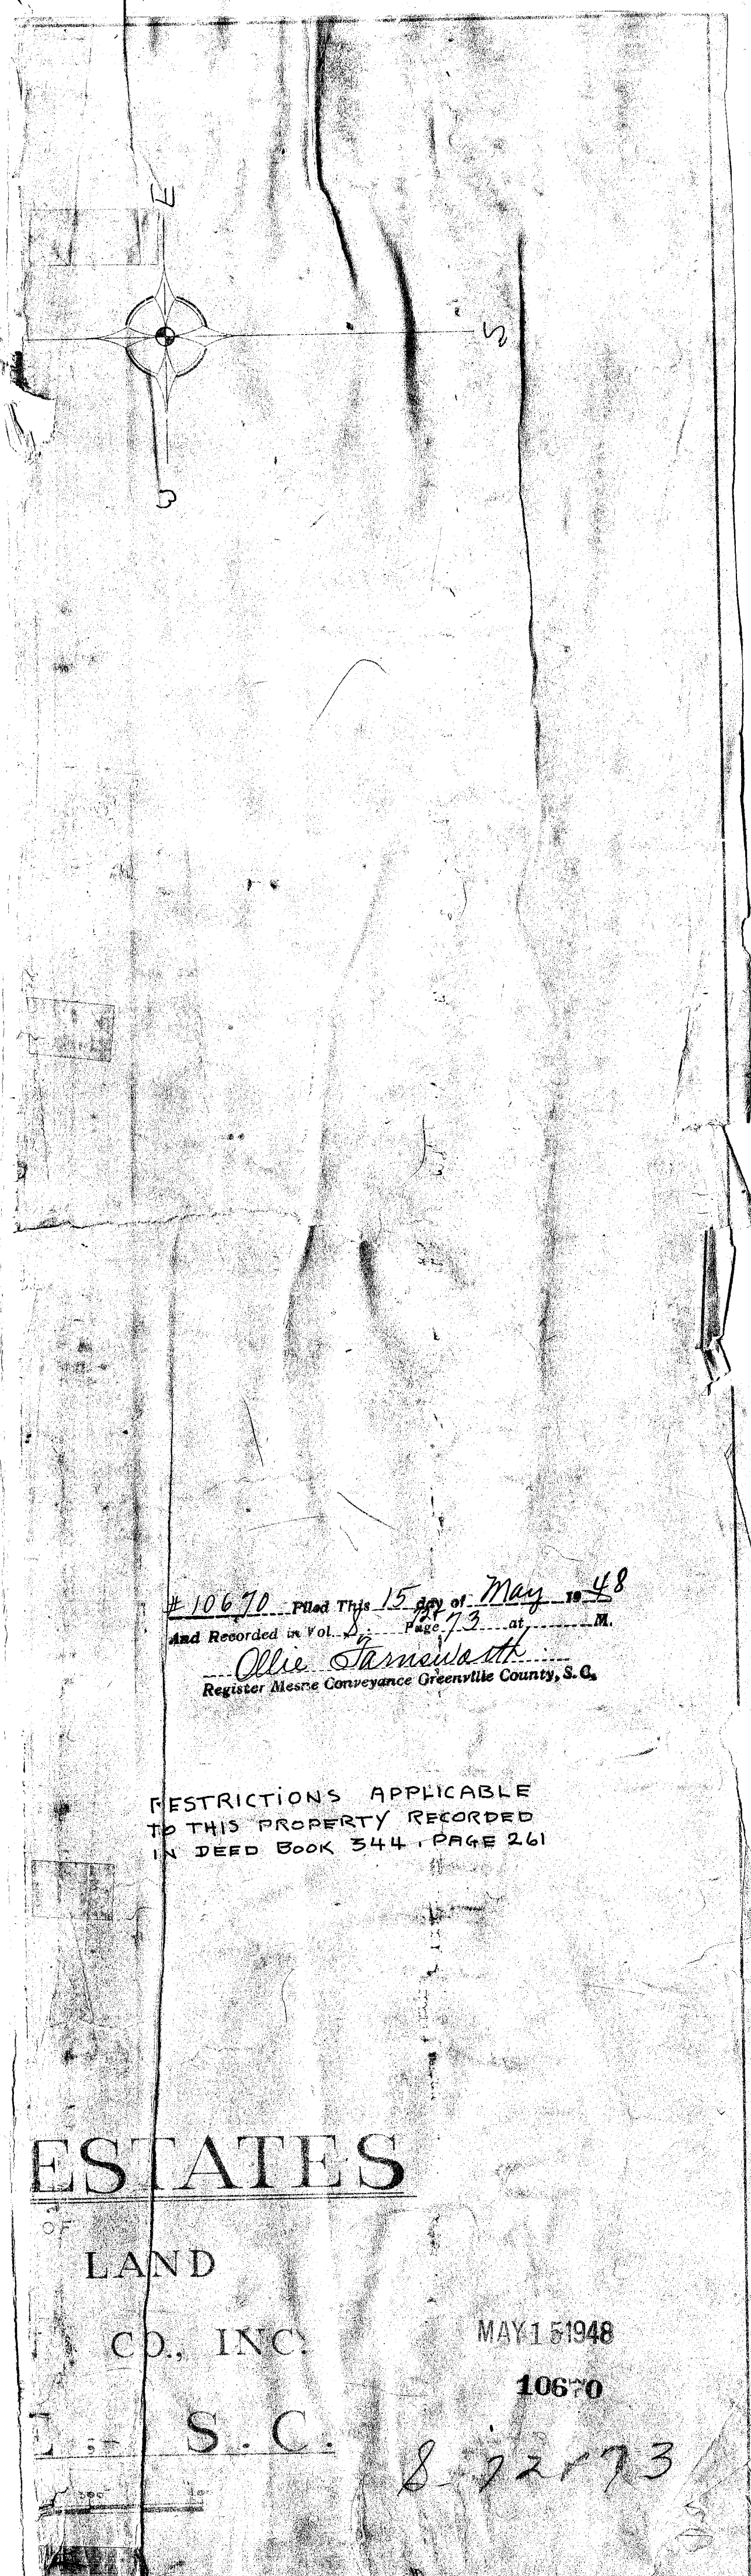 E
S
W
# 10670 Filed This 15 day of May 19 48
And Recorded in Vol. S, Page 72 & 73 at M.
Ollie Farnsworth
Register Mesne Conveyance Greenville County, S. C.
RESTRICTIONS APPLICABLE
TO THIS PROPERTY RECORDED
IN DEED BOOK 344, PAGE 261
ESTATES
OF
LAND
CO., INC.
S. C.
MAY 15 1948
10670
S-72 & 73